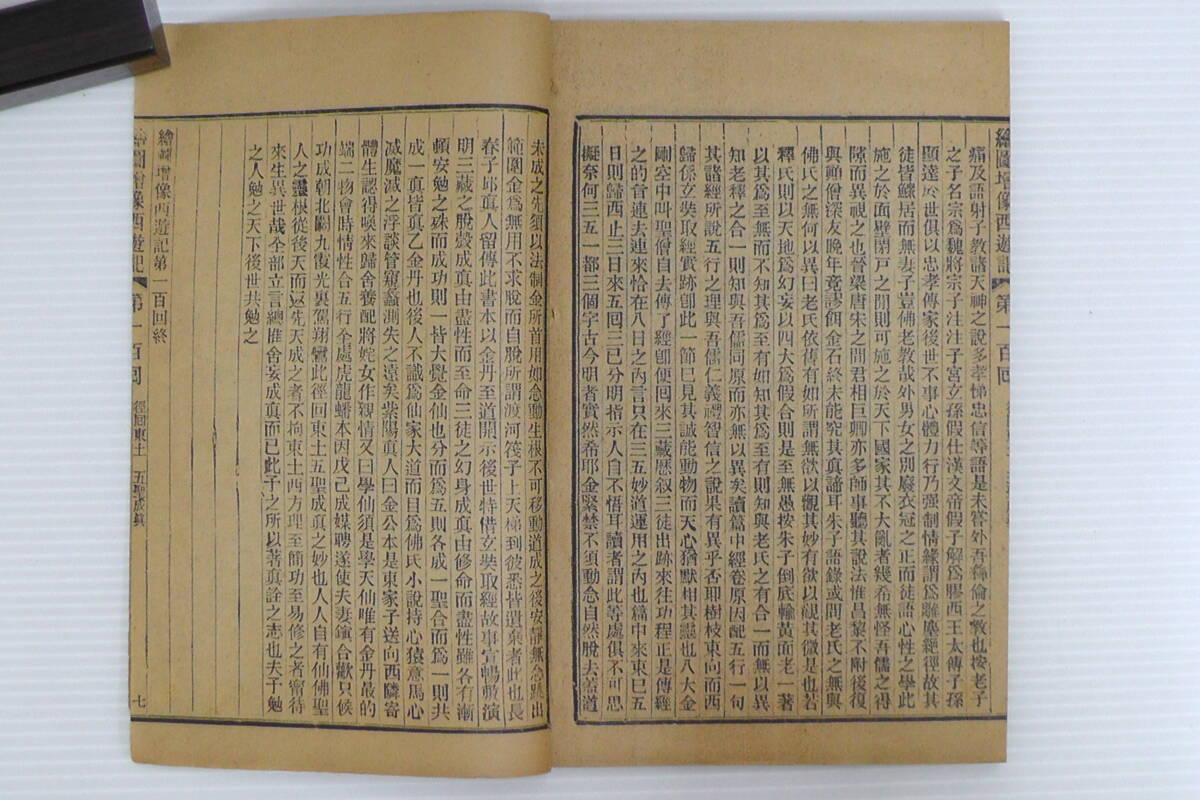 繪圖增像西遊記 第一百回
痛及語射子教諸天神之說多孝悌忠信等語是未嘗外吾彝倫之教也按老子
之子名宗爲魏將宗子注注子宮玄孫假仕漢文帝假子解爲膠西王太傅子孫
顯達於世俱以忠孝傳家後世不事心體力行乃强制情緣謂爲離塵絕徑故其
徒皆鰥居而無妻子豈佛老教哉外男女之別廢衣冠之正而徒語心性之學此
施之於面壁閉戸之間則可施之於天下國家其不大亂者幾希無怪吾儒之得
隙而異視之也晉梁唐宋之間君相巨卿亦多師事聽其說法惟昌黎不附後復
與顚僧深友晚年竟謬餌金石終未能究其真諦耳朱子語錄或問老氏之無與
佛氏之無何以異曰老氏依舊有如所謂無欲以觀其妙有欲以觀其徼是也若
釋氏則以天地爲幻妄以四大爲假合則是至無愚按朱子倒底輸黃面老一著
以其爲至無而不知其爲至有如知其爲至有則知與老氏之有合一而無以異
知老釋之合一則知與吾儒同原而亦無以異矣讀當中經卷原因配五行一句
其諸經所說五行之理與吾儒仁義禮智信之說果有異乎否耶樹枝東向而西
歸係玄奘取經實跡卽此一節已見其誠能動物而天心猶默相其靈也八大金
剛空中叫聖僧自去傳了經卽便囘來三藏歷叙三徒出跡來往功程正是傳經
之的旨連去連來恰在八日之內言只在三五妙道運用之內也篇中來東已五
日則歸西止三日來五囘三已分明指示人自不悟耳讀者謂此等處俱不可思
擬奈何三五一都三個字古今明者實然希耶金緊禁不須動念自然脫去蓋道
未成之先須以法制金所首用如念動生根不可移動道成之後安靜無念點出
範圍金爲無用不求脫而自脫所謂渡河筏子上天梯到彼悉皆遺棄者此也長
春子邱真人留傳此書本以金丹至道開示後世特借玄奘取經故事宣暢敷演
明三藏之脫殼成真由盡性而至命三徒之幻身成真由修命而盡性雖各有漸
頓安勉之殊而成功則一皆大覺金仙也分而爲五則各成一聖合而爲一則共
成一真皆真乙金丹也後人不識爲仙家大道而目爲佛氏小說持心猿意馬心
滅魔滅之浮談管窺蠡測失之遠矣紫陽真人曰金公本是東家子送向西隣寄
體生認得喚來歸舍養配將姹女作親情又曰學仙須是學天仙唯有金丹最的
端二物會時情性合五行全處虎龍蟠本因戊己成媒聘遂使夫妻鎭合歡只候
功成朝北闕九霞光裏駕翔鸞此徑回東土五聖成真之妙也人人自有仙佛聖
人之靈根從後天而返先天成之者不拘東土西方理至簡功至易修之者甯待
來生異世哉全部立言則總惟舍妄成真而已此予之所以著真詮之志也夫予勉
之人勉之天下後世共勉之
繪圖增像西遊記第一百回終
繪圖增像西遊記 第一百回 徑回東土 五聖成真 七